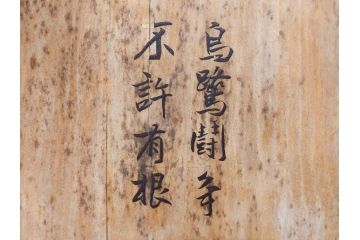 烏鷺鬪争
不許有根